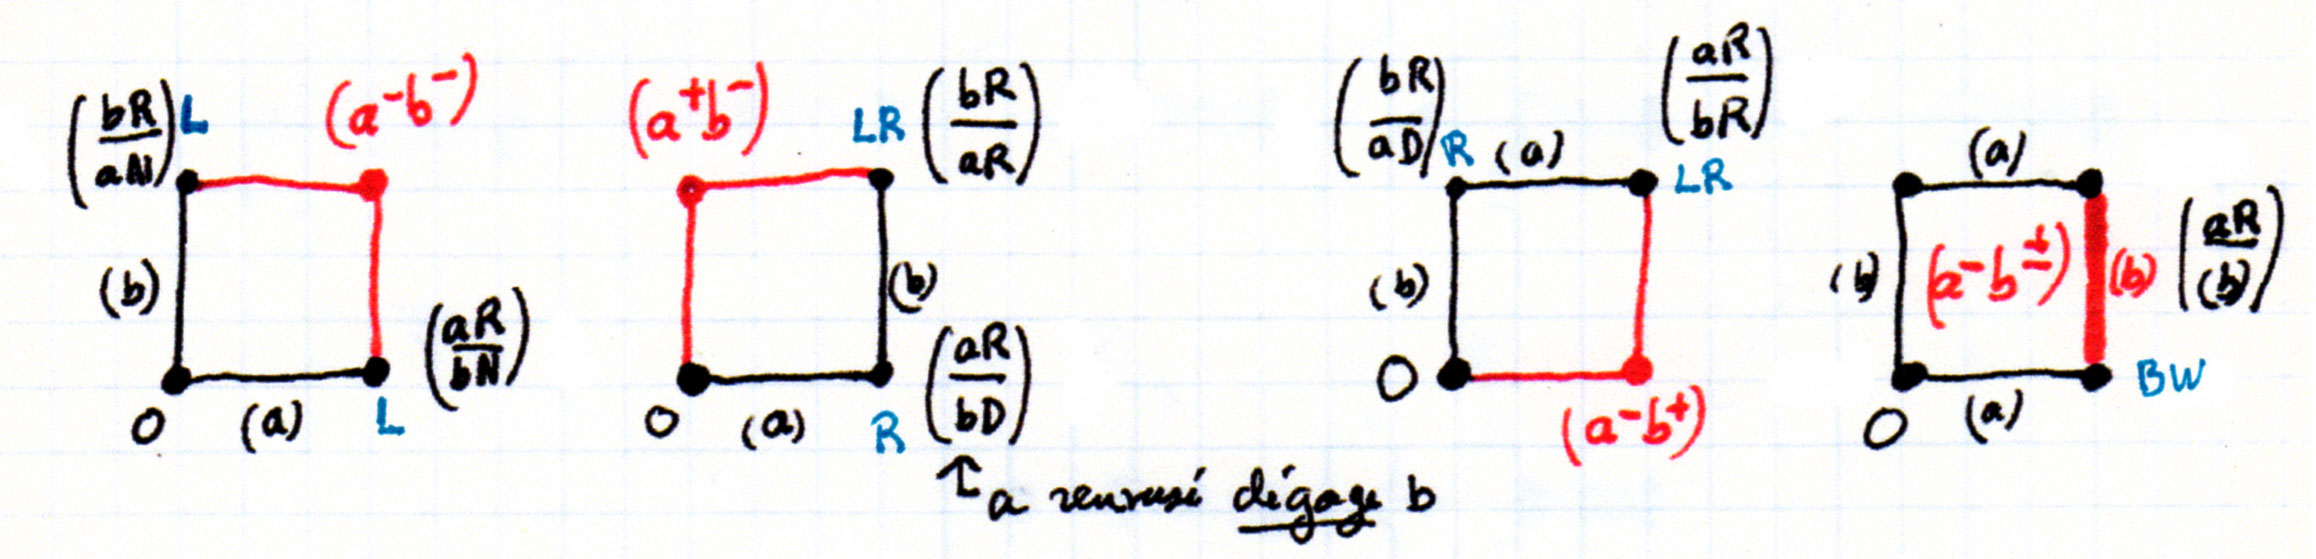 (bR/aN) L (a⁻b⁻)
(b)
(aR/bN)
O (a) L
(a⁺b⁻) LR (bR/aR)
(b)
(aR/bD)
O (a) R
↑ a renversé dégage b
(bR/aD) R (a) (aR/bR)
LR
(b)
O
(a⁻b⁺)
(a)
(b) (a⁻b±) (b) (aR/(b))
BW
O (a)